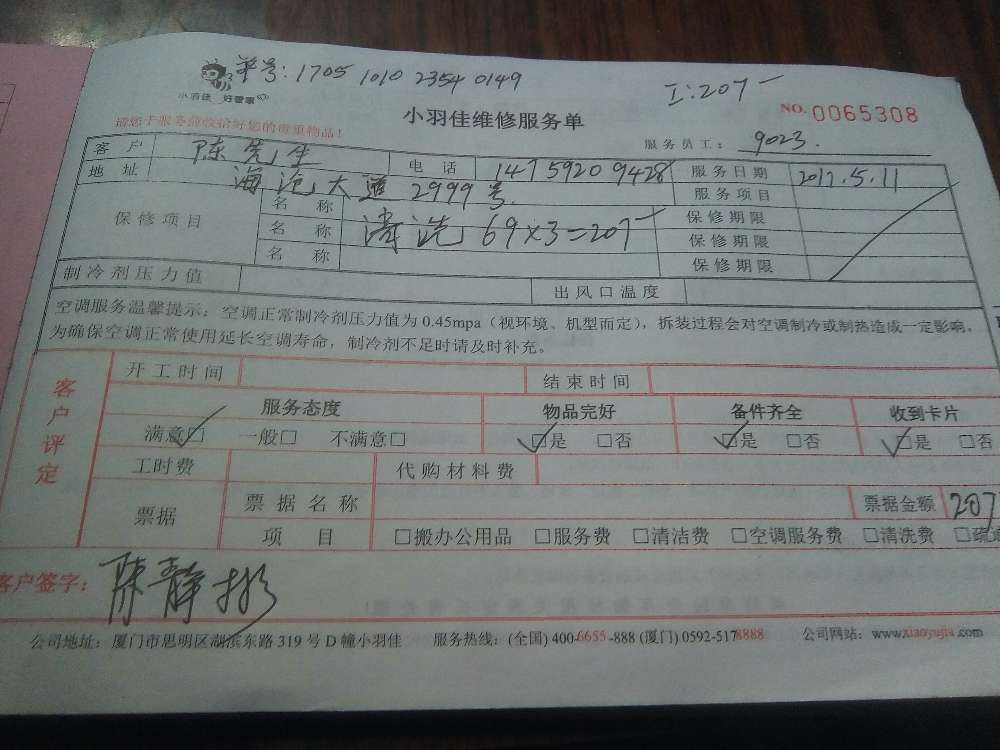 单号: 1705 1010 2354 0149
I:207-
小羽佳 好管家
小羽佳维修服务单
NO. 0065308
请您于服务前收拾好您的贵重物品!
服务员工: 9023.
客户 陈先生 电话 14759209428 服务日期 2017.5.11
地址 海沧大道2999号 服务项目
保修项目 名称 保修期限
名称 清洗 69×3=207- 保修期限
名称 保修期限
制冷剂压力值 出风口温度
空调服务温馨提示:空调正常制冷剂压力值为0.45mpa(视环境、机型而定),拆装过程会对空调制冷或制热造成一定影响,
为确保空调正常使用延长空调寿命,制冷剂不足时请及时补充。
客户评定
开工时间 结束时间
服务态度 物品完好 备件齐全 收到卡片
满意□ 一般□ 不满意□ □是 □否 □是 □否 □是 □否
工时费 代购材料费
票据 票据名称 票据金额 207
项目 □搬办公用品 □服务费 □清洁费 □空调服务费 □清洗费 □疏
客户签字: 陈静彬
公司地址:厦门市思明区湖滨东路319号D幢小羽佳 服务热线:(全国)400-6655-888(厦门)0592-5178888 公司网站:www.xiaoyujia.com